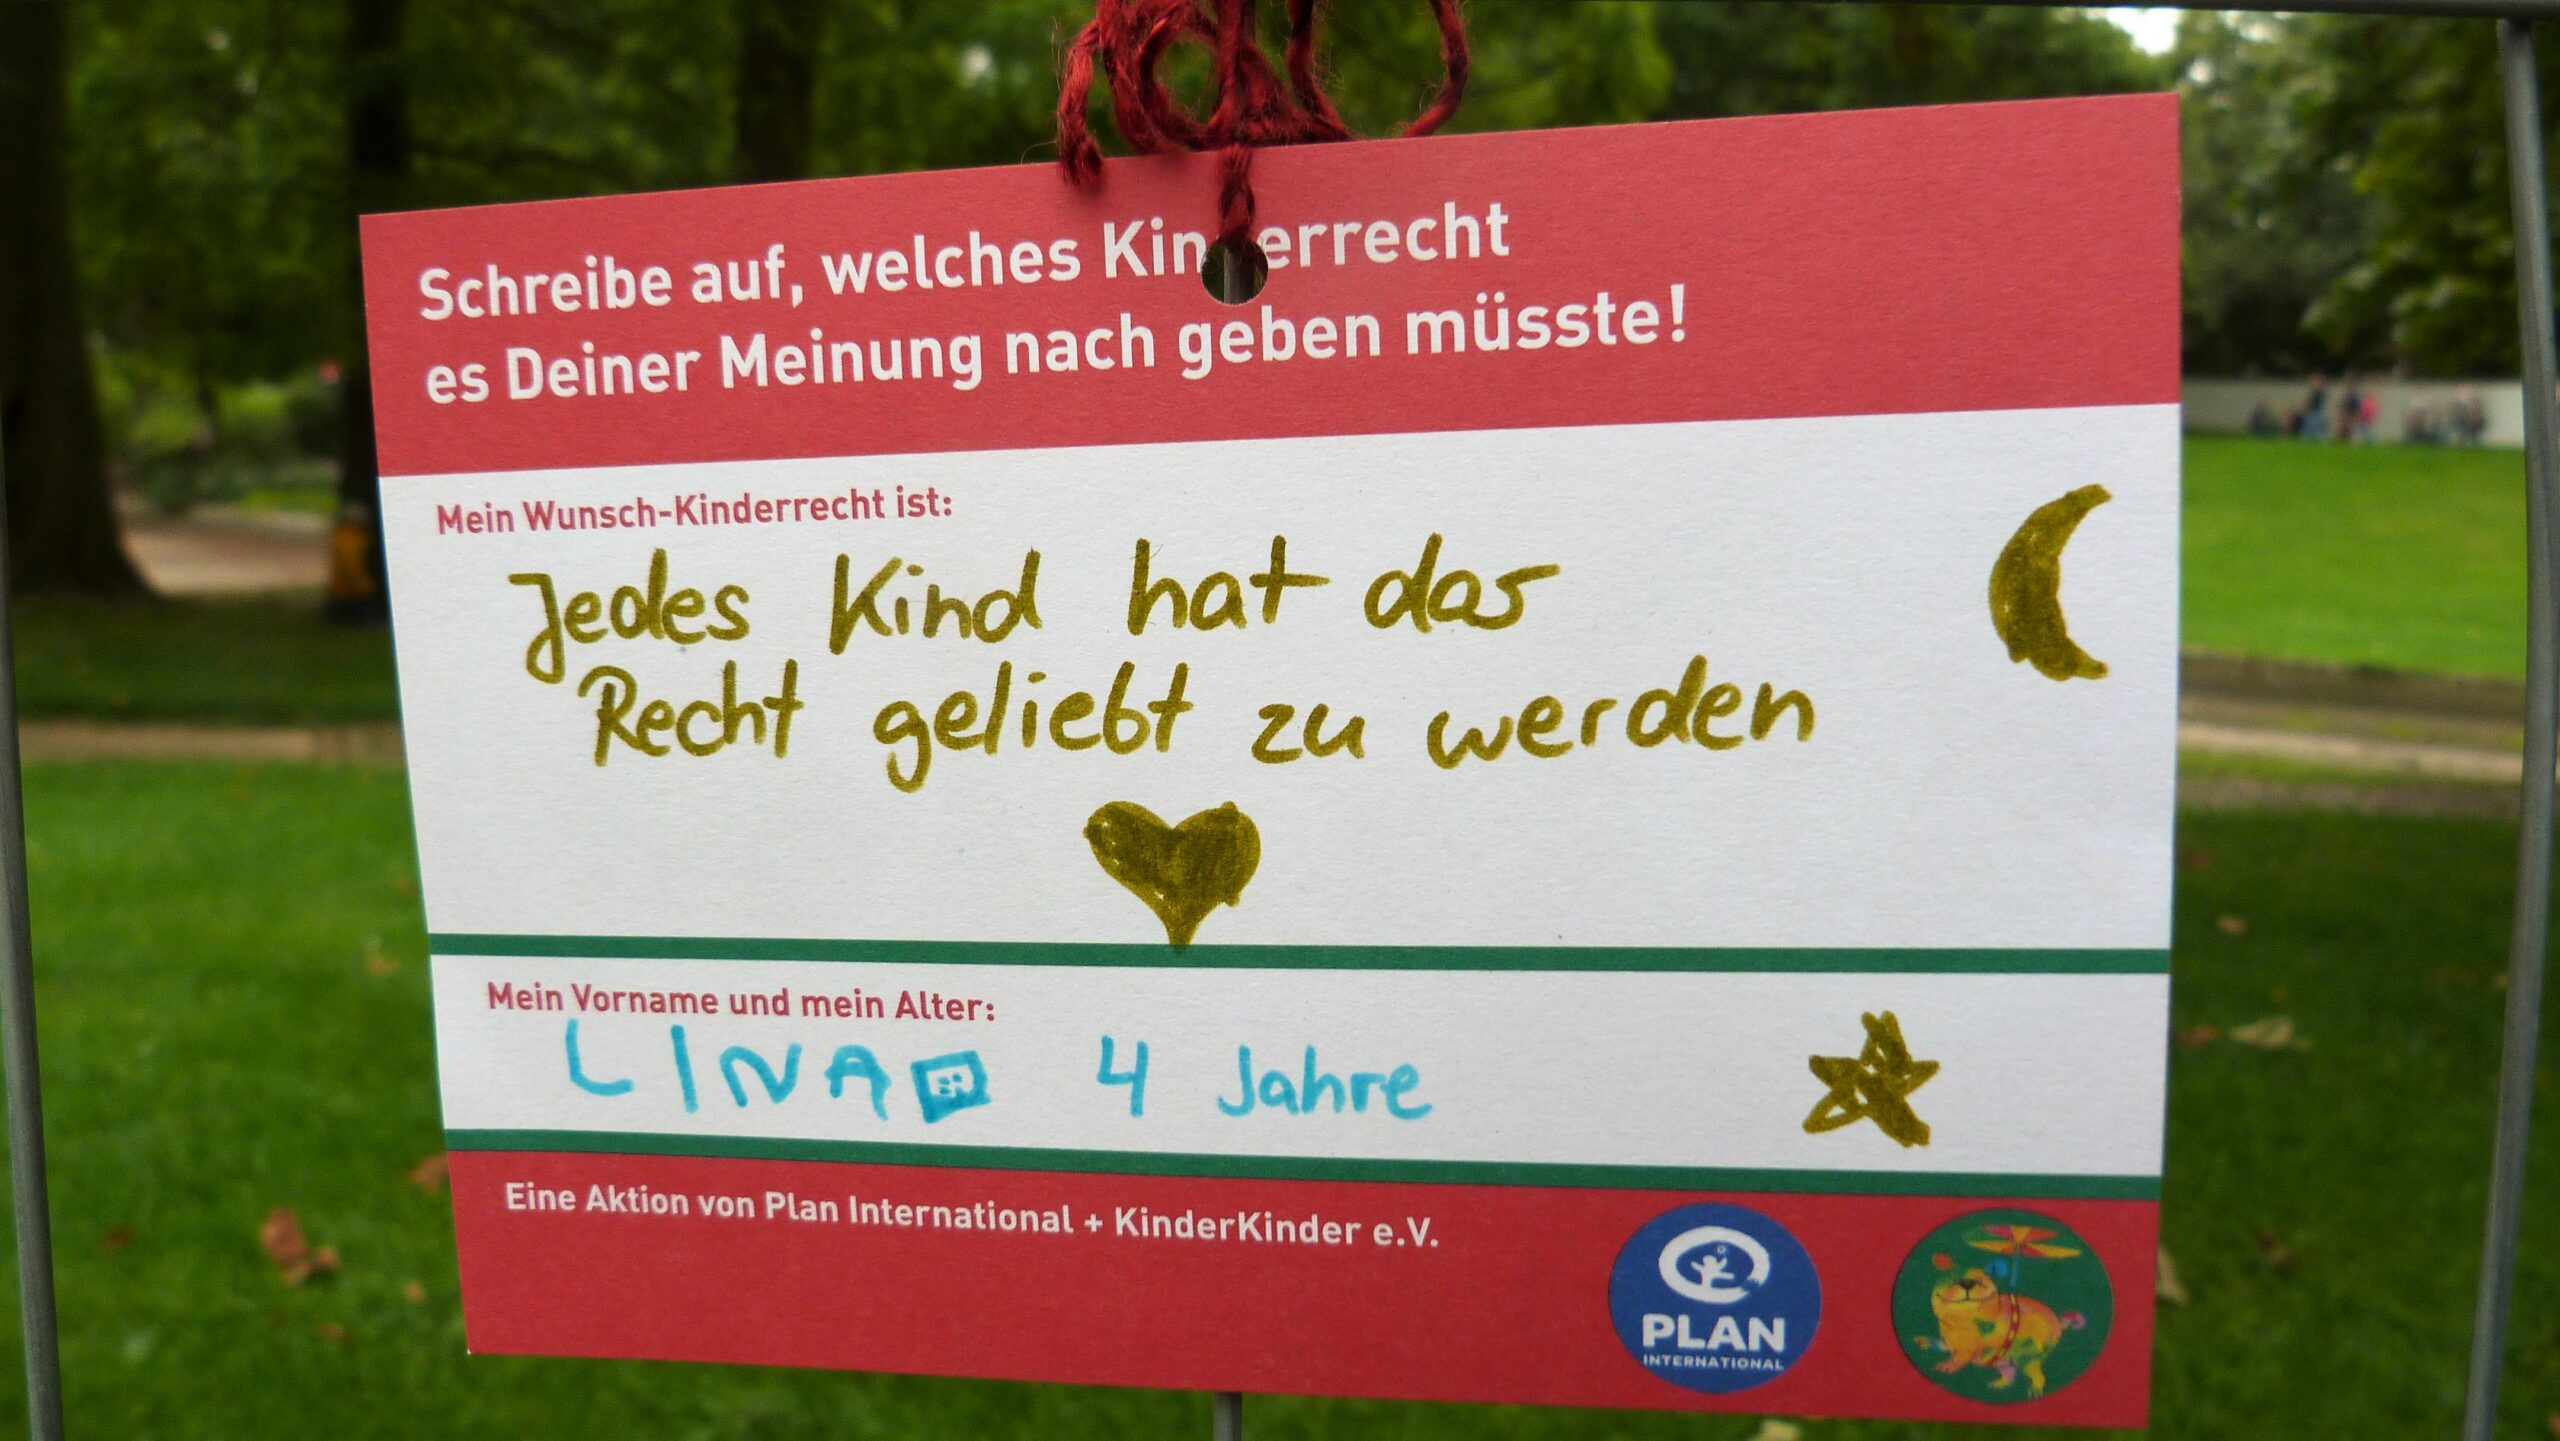 Schreibe auf, welches Kinderrecht
es Deiner Meinung nach geben müsste!
Mein Wunsch-Kinderrecht ist:
Jedes Kind hat das
Recht geliebt zu werden
Mein Vorname und mein Alter:
LINA 4 Jahre
Eine Aktion von Plan International + KinderKinder e.V.
PLAN
INTERNATIONAL